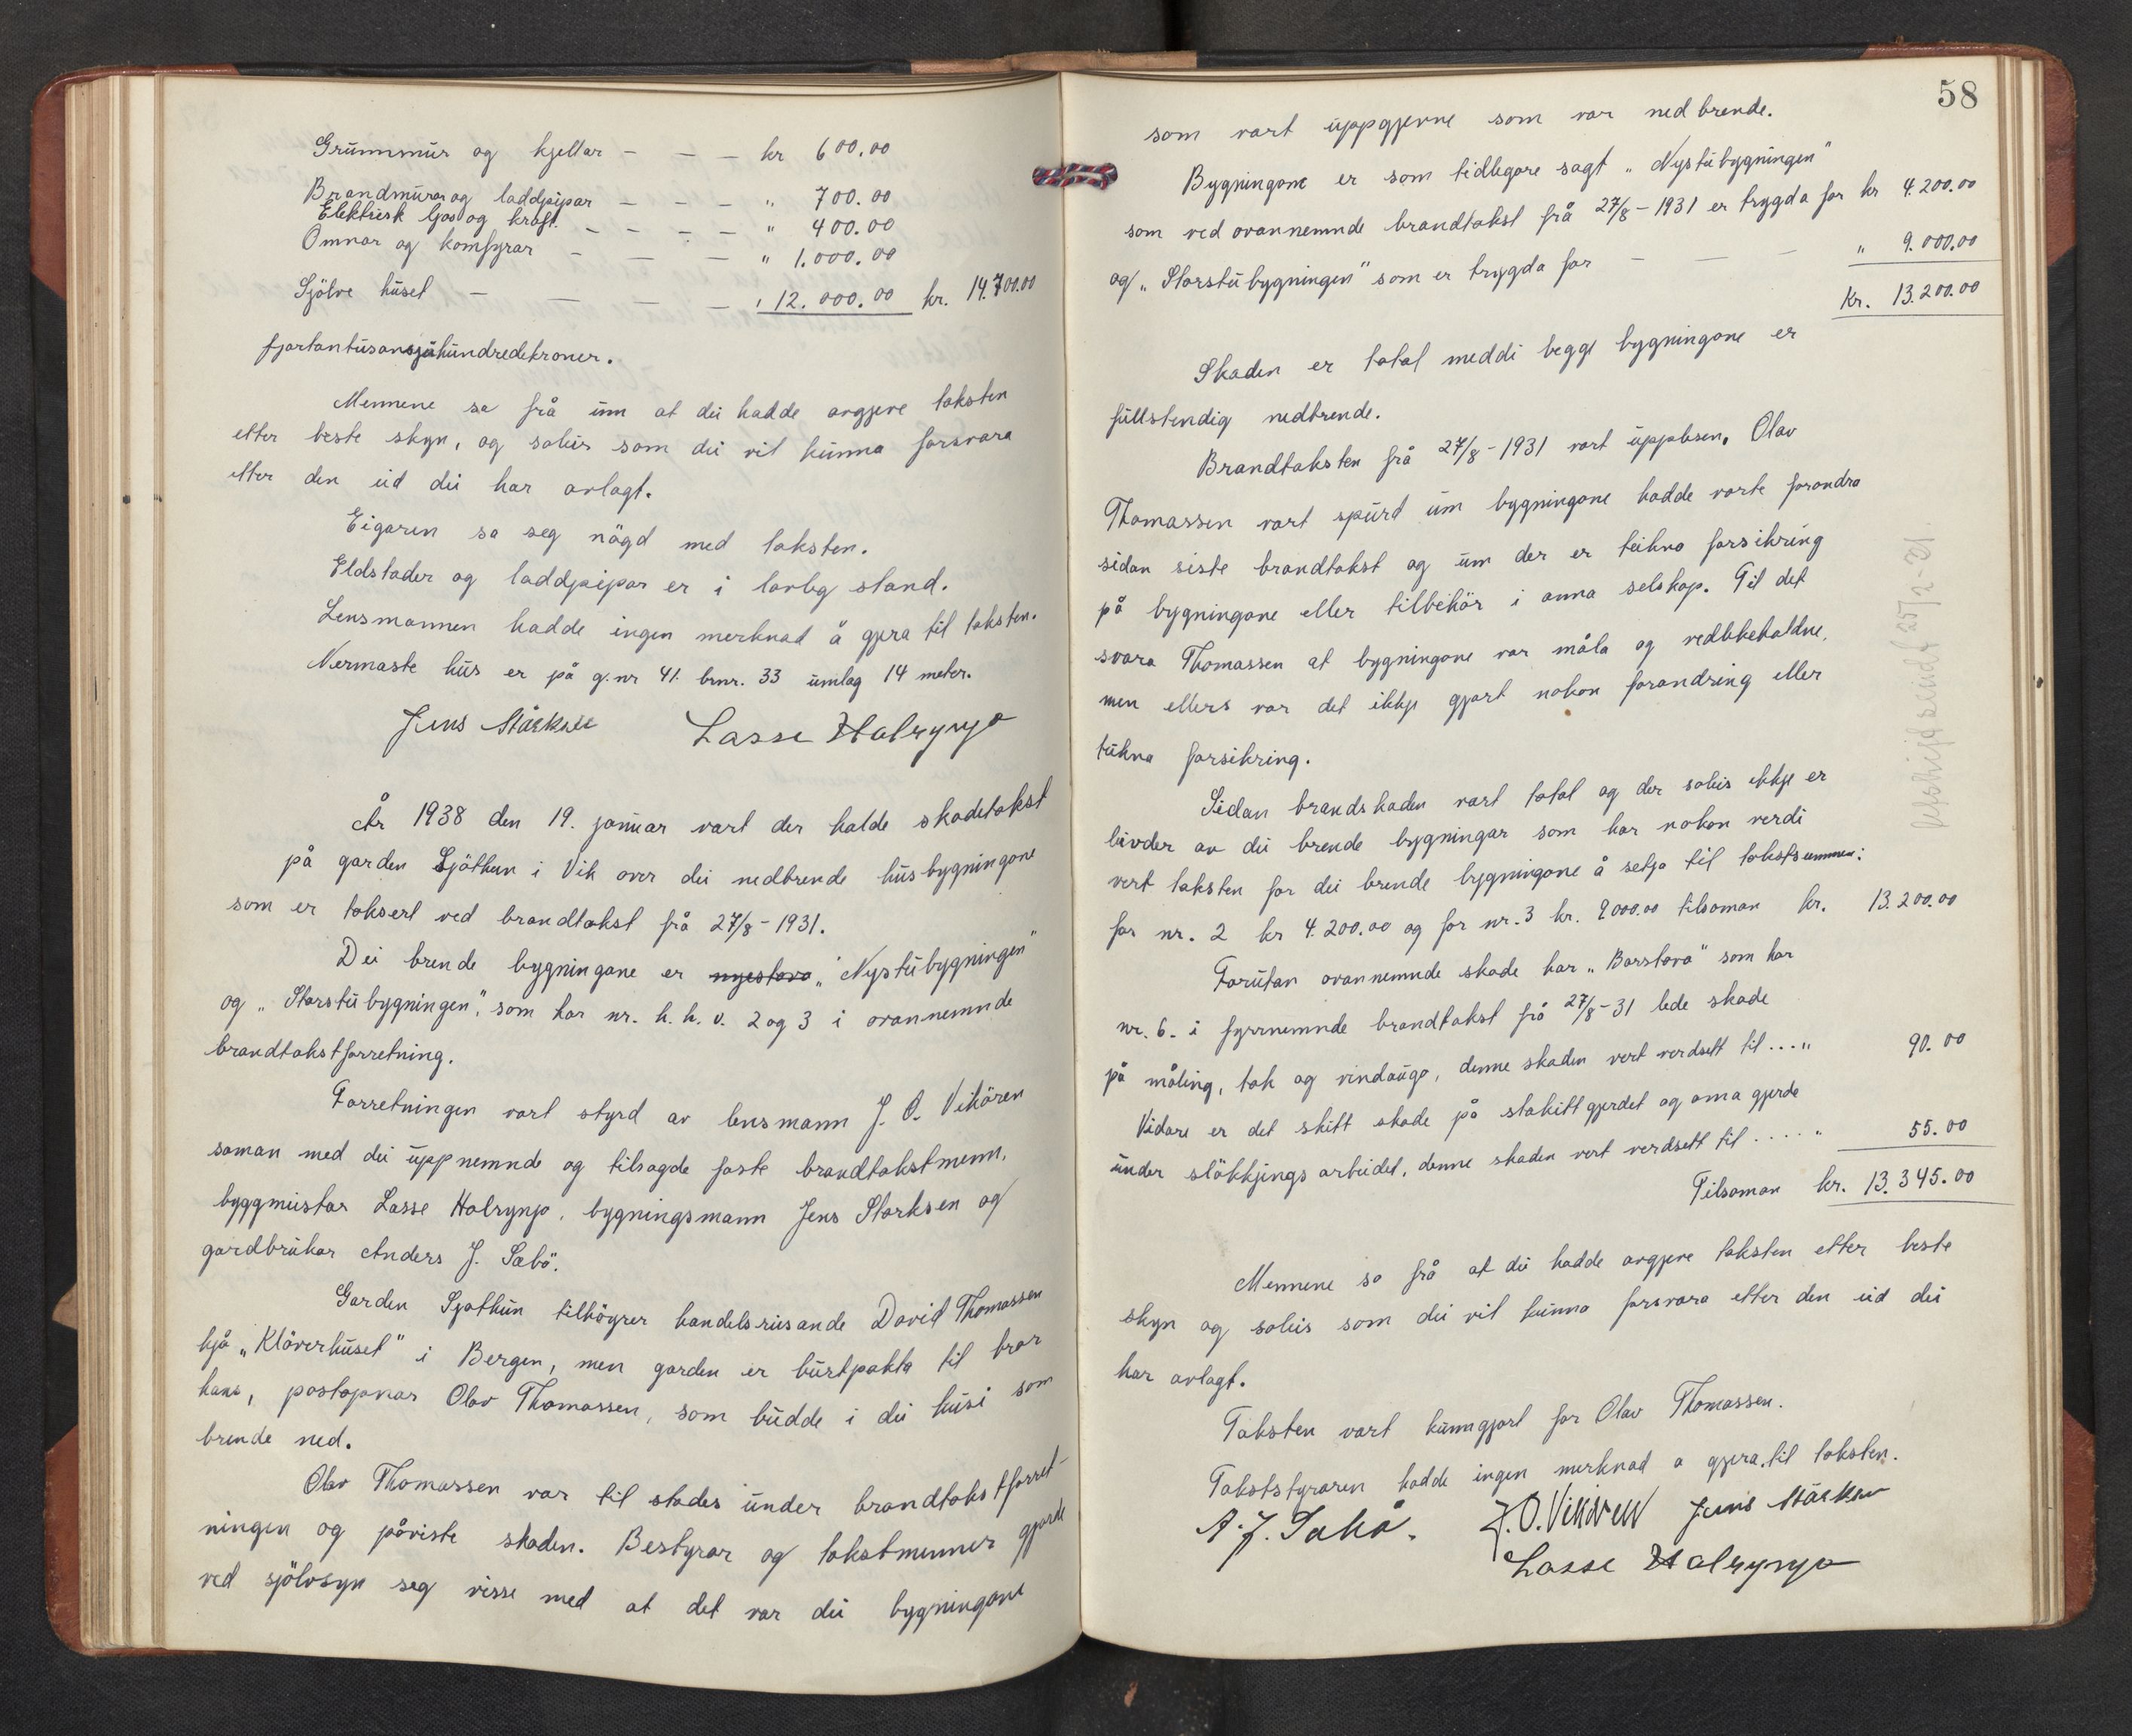 Grunnmur og kjellar – – – kr 600.00
Brandmurar og laddpipar – – – " 700.00
Elektrisk ljos og kraft. – – – – " 400.00
Omnar og komfyrar – – – " 1.000.00
Sjölve huset – – – – – " 12.000.00 kr. 14.700.00
fjortantusansjuhundredekroner.
Mennene sa frå um at dei hadde avgjeve taksten
etter beste skyn, og soleis som dei vil kunna forsvara
etter den eid dei har avlagt.
Eigaren sa seg nögd med taksten.
Eldstader og laddpipar er i lovleg stand.
Lensmannen hadde ingen merknad å gjera til taksten.
Nermaste hus er på g.nr 41. brnr. 33 umlag 14 meter.
Jens Stärksen Lasse Halrynjo
År 1938 den 19. januar vart der halde skadetakst
på garden Sjötun i Vik over dei nedbrende husbygningane
som er taksert ved brandtakst frå 27/8 – 1931.
Dei brende bygningane er nyestova „Nystubygningen"
og „Storstubygningen", som har nr. h. h. v. 2 og 3 i ovannemnde
brandtakstforretning.
Forretningen vart styrd av lensmann J. O. Vikören
saman med dei uppnemnde og tilsagde faste brandtakstmenn,
byggmeistar Lasse Halrynjo, bygningsmann Jens Starksen og
gardbrukar Anders J. Sæbö.
Garden Sjøtun tilhöyrer handelsreisande David Thomassen
hjå „Klöverhuset" i Bergen, men garden er burtpakta til bror
hans, postopnar Olav Thomassen, som budde i dei husi som
brende ned.
Olav Thomassen var til stades under brandtakstforret-
ningen og påviste skaden. Bestyrar og takstmenner gjorde
ved sjölvsyn seg visse med at det var dei bygningane
58
som vart uppgjevne som var nedbrende.
Bygningane er som tidlegare sagt „Nystubygningen"
som ved ovannemnde brandtakst frå 27/8 – 1931 er trygda for kr 4.200.00
og „Storstubygningen" som er trygda for – – – " 9.000.00
Kr. 13.200.00
Skaden er total meddi begge bygningane er
fullstendig nedbrende.
Brandtaksten frå 27/8 – 1931 vart upplesen. Olav
Thomassen vart spurd um bygningane hadde vorte forandra
sidan siste brandtakst og um der er teikna forsikring
på bygningane eller tilbehör i anna selskap. Til det
svara Thomassen at bygningane var måla og vedlikehaldne,
men ellers var det ikkje gjort nokon forandring eller
teikna forsikring.
Sidan brandskaden vart total og der soleis ikkje er
leivder av dei brende bygningar som har nokon verdi
vert taksten for dei brende bygningane å setja til takstsummen:
for nr. 2 kr 4.200.00 og for nr. 3 kr. 9000.00 tilsaman kr. 13.200.00
Forutan ovannemnde skade har „Borstova" som har
nr. 6. i fyrrnemnde brandtakst frå 27/8 – 31 lede skade
på måling, tak og vindaugo, denne skaden vert verdsett til ... " 90.00
Vidare er det skitt skade på stakittgjerdet og anna gjerde
under slökkjingsarbeidet, denne skaden vert verdsett til ..... " 55.00
Tilsaman kr. 13.345.00
Mennene sa frå at dei hadde avgjeve taksten etter beste
skyn og soleis som dei vil kunna forsvara etter den eid dei
har avlagt.
Taksten vart kunngjort for Olav Thomassen.
Takststyraren hadde ingen merknad a gjera til taksten.
A. J. Sæbö. J. O. Vikören Jens Stärksen
Lasse Halrynjo